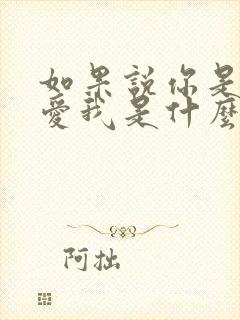 如果説你是
愛我是什麼
阿拙